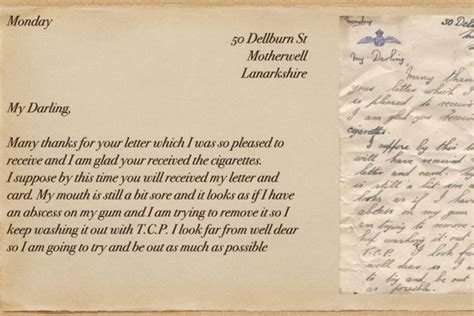 Monday
50 Dellburn St
Motherwell
Lanarkshire
My Darling,
Many thanks for your letter which I was so pleased to
receive and I am glad your received the cigarettes.
I suppose by this time you will received my letter and
card. My mouth is still a bit sore and it looks as if I have
an abscess on my gum and I am trying to remove it so I
keep washing it out with T.C.P. I look far from well dear
so I am going to try and be out as much as possible
Monday
50 Dellb
My Darling,
Many than
your letter which I
so pleased to receive
I am glad you received
cigarettes.
I suppose by this ti
will have received
letter and card. My
is still a bit sore
looks as if I have
abscess on my gum
am trying to remove
keep washing it out
T.C.P. I look fa
well dear so I
to try and be out
as possible.